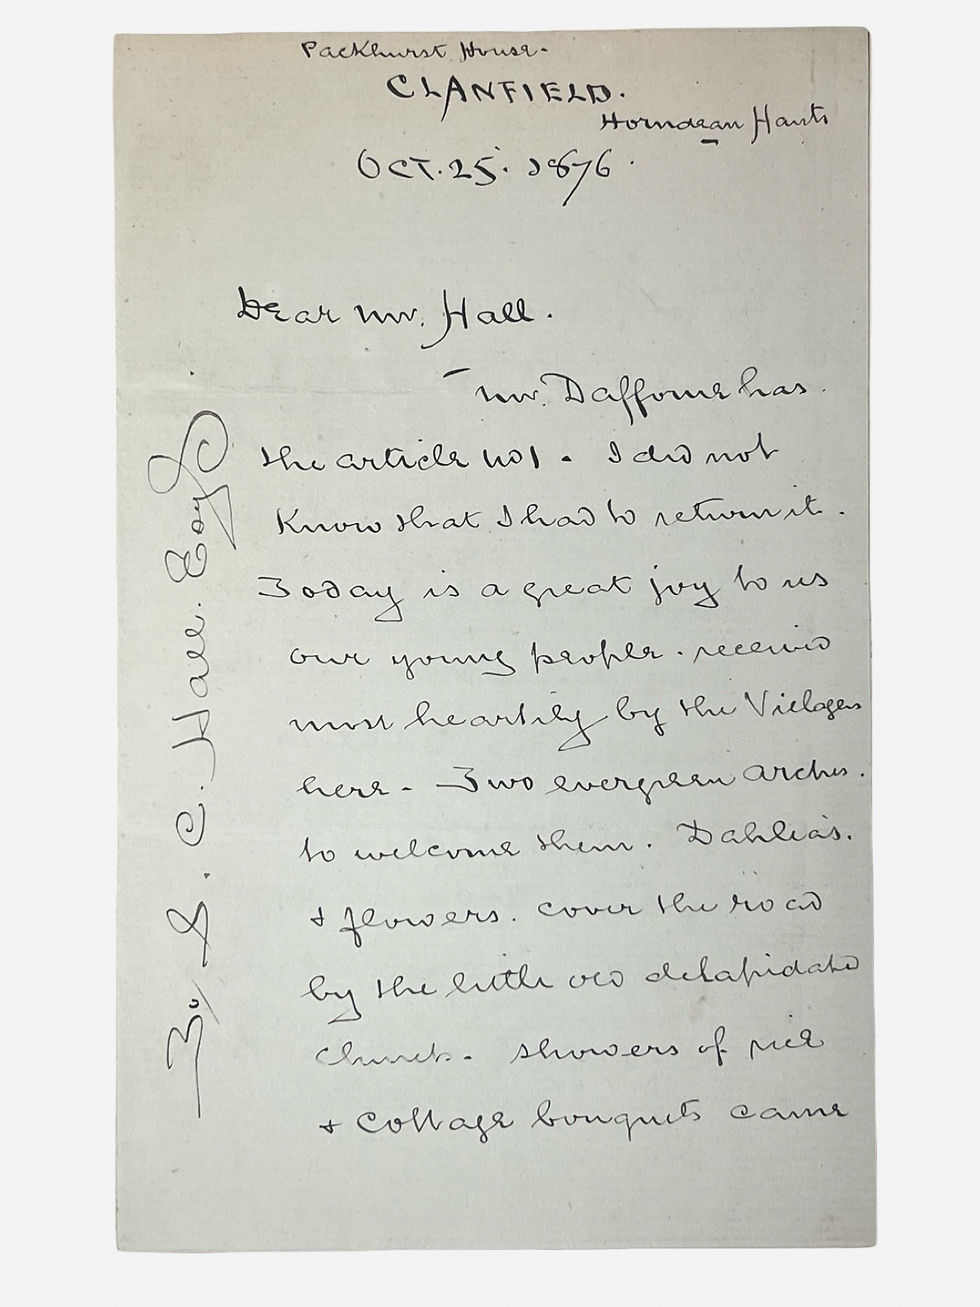 Packhurst House.
CLANFIELD.
Horndean Hants
OCT. 25. 1876.
Dear Mr. Hall.
Mr. Dafforne has
the article No 1. I did not
Know that I had to return it.
Today is a great joy to us
our young people. received
most heartily by the Villagers
here. Two evergreen arches.
to welcome them. Dahlia's.
& flowers. cover the road
by the little old delapidated
Church. Showers of rice
& Cottage bouquets came
To S. C. Hall. Esq